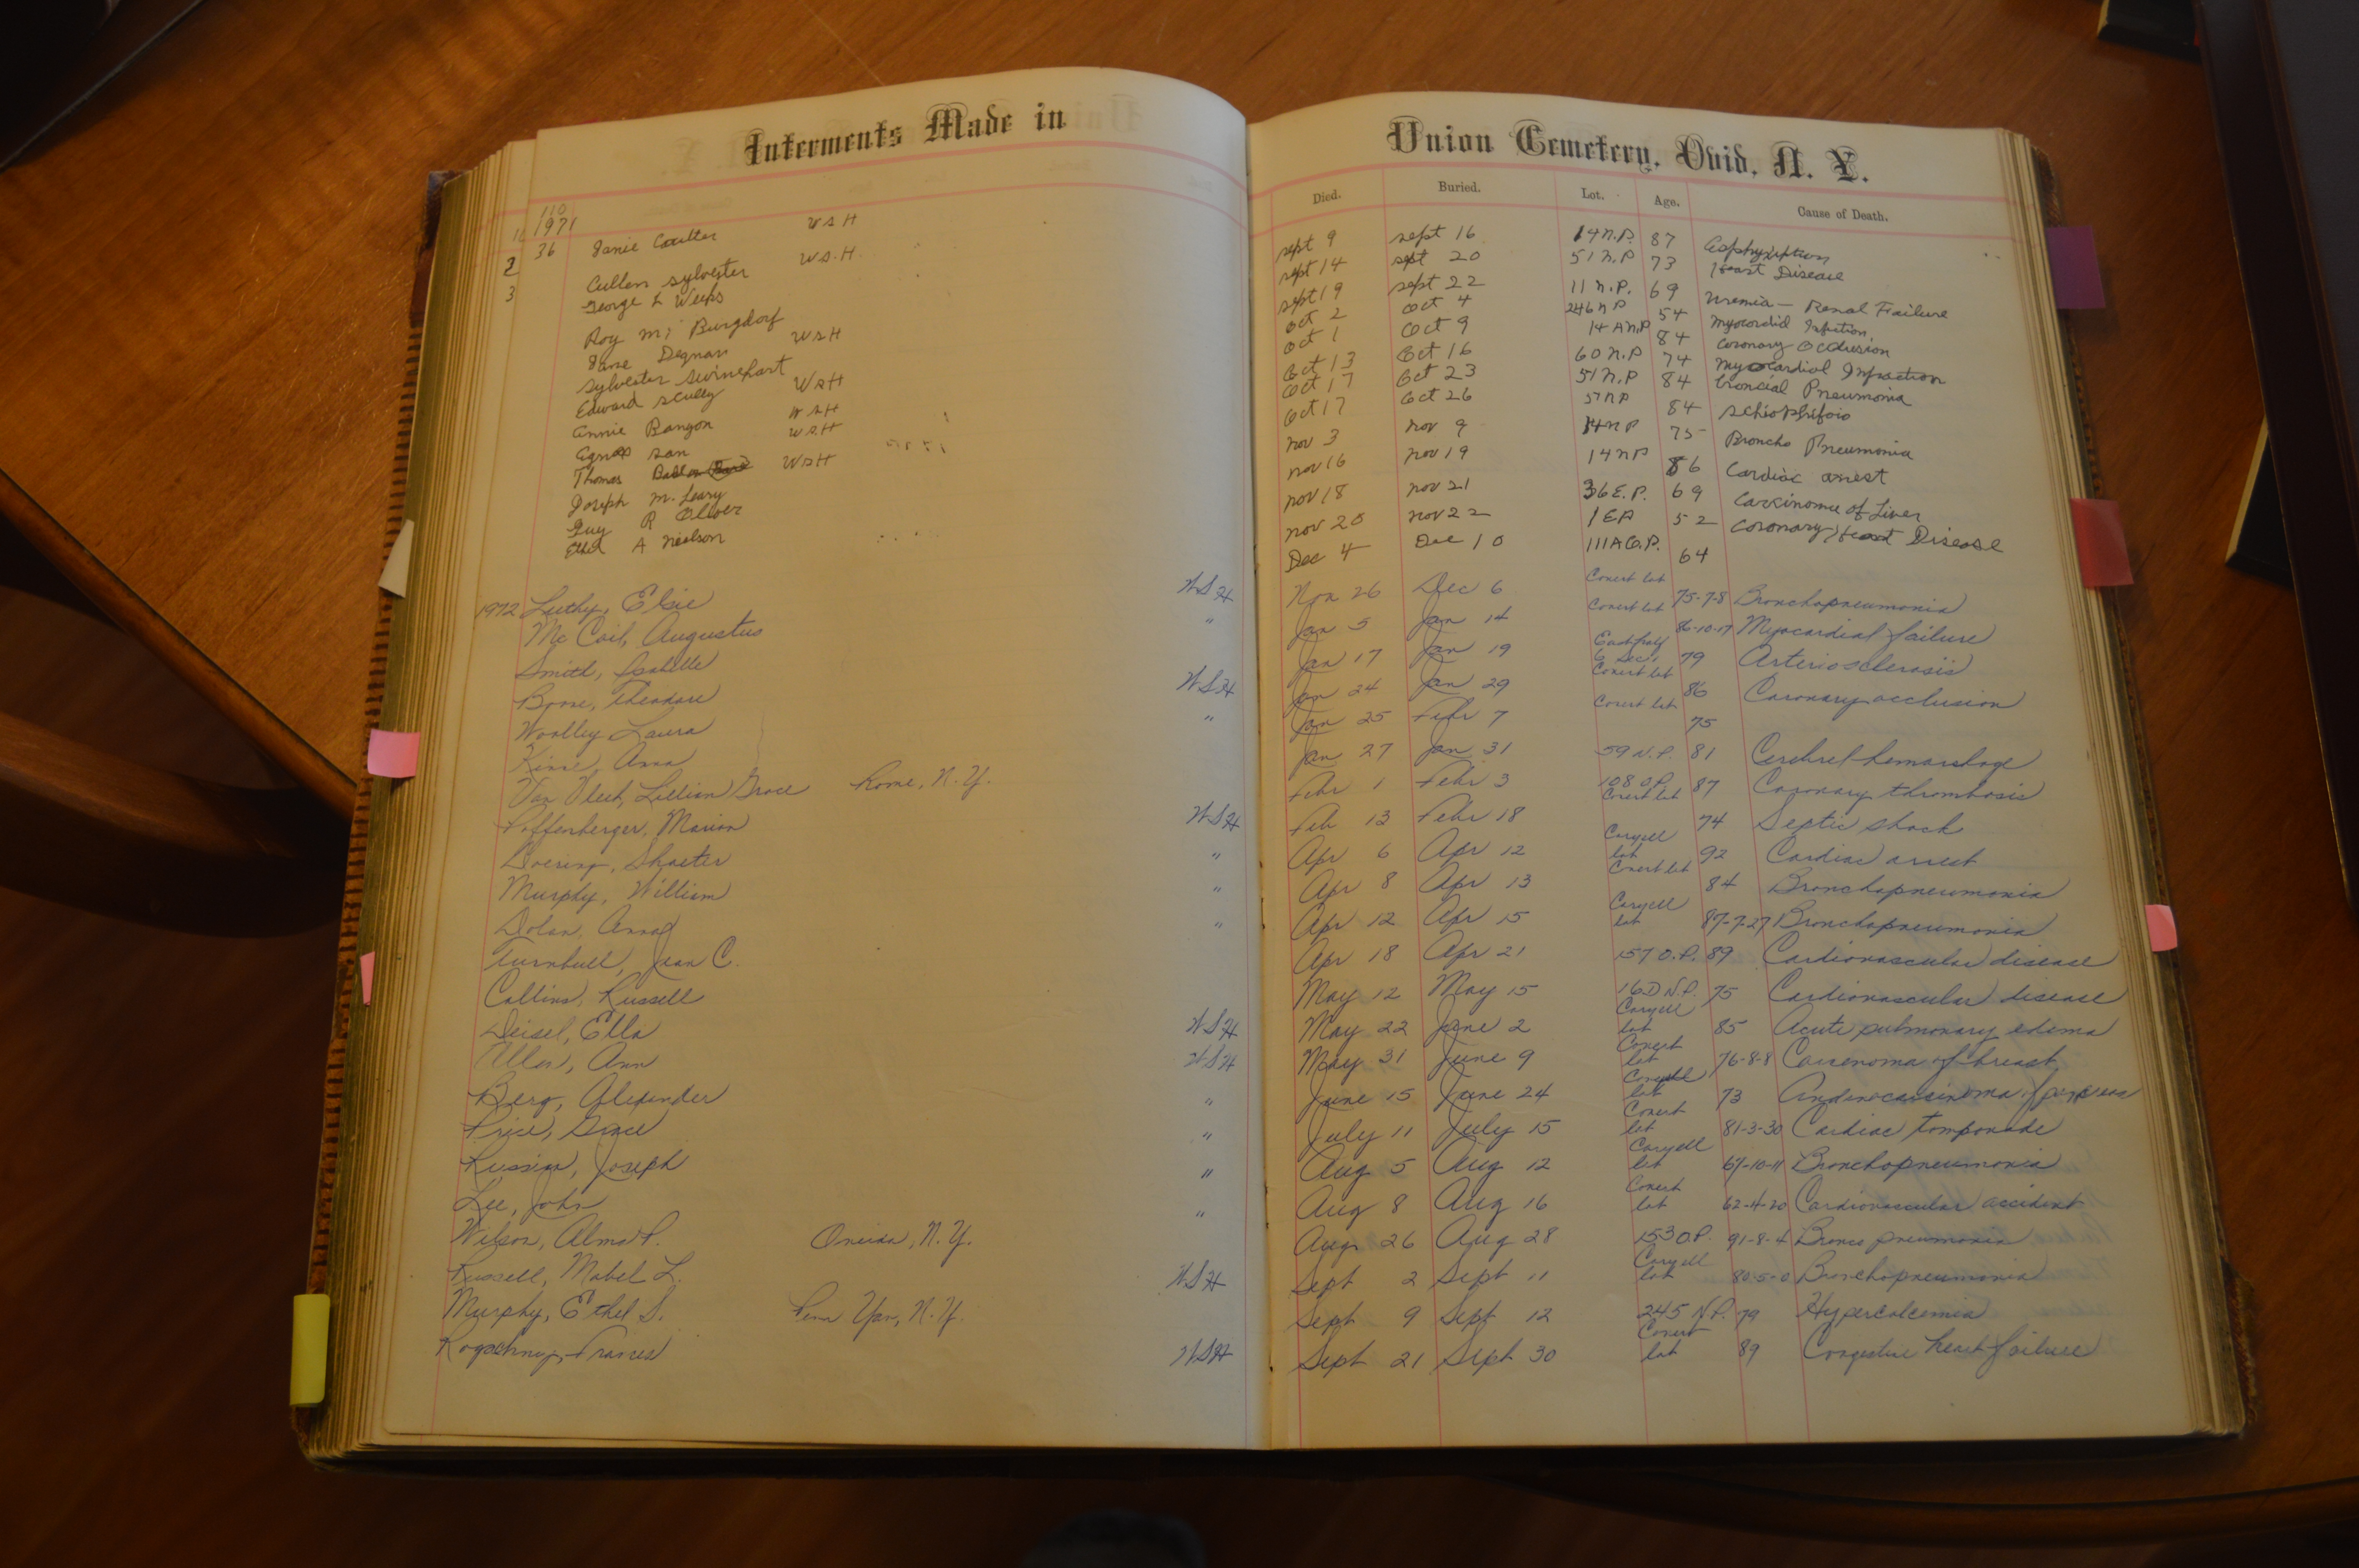 Interments Made in Union Cemetery, Ovid, N. Y.
Died. Buried. Lot. Age. Cause of Death.
110
1971
36 Janie Coulter W S H Sept 9 Sept 16 14 N.P. 87 Asphyxiption
2 Cullen Sylvester W.S.H. Sept 14 Sept 20 51 N.P 73 Heart Disease
3 George L Weeks Sept 19 Sept 22 11 N.P. 69 Uremia - Renal Failure
Roy M; Burgdorf Oct 2 Oct 4 246 N P 54 Myocordid Infrction
Jane Degnan W S H Oct 1 Oct 9 14 A N.P 84 Coronary Occlusion
Sylvester Swinehart Oct 13 Oct 16 60 N.P 74 Myocardial Infraction
Edward Scully W S H Oct 17 Oct 23 51 N.P 84 broncial Pneumonia
Annie Bangon W S H Oct 17 Oct 26 57 N P 84
Agnes San W S H Nov 3 Nov 9 14 N P 75 Broncho Pneumonia
Thomas W S H Nov 16 Nov 19 14 N P 86 Cardiac arrest
Joseph M. Leary Nov 18 Nov 21 36 E.P. 69 Carkinome of Liver
Guy R Oliver Nov 20 Nov 22 1 E P 52 Coronary Heart Disease
Ethel A Neilson Dec 4 Dec 10 111 A O.P. 64
1972 Luthy, Elsie W S H Nov 26 Dec 6 Covert lot 75-7-8 Bronchopneumonia
Mc Coil, Augustus " Jan 5 Jan 14 Covert lot 86-10-17 Myocardial failure
Smith, Isabelle Jan 17 Jan 19 East half 6 Sec 1 79 Arteriosclerosis
Boone, Theodore W S H Jan 24 Jan 29 Covert lot 86 Coronary occlusion
Woolley Laura " Jan 25 Febr 7 Covert lot 75
Kinne, Anna Jan 27 Jan 31 59 N.P. 81 Cerebrel hemorrhage
Van Vleet, Lillian Grace Rome, N.Y. Febr 1 Febr 3 108 O.P. 87 Coronary thrombosis
Poffenberger, Marion W S H Feb 13 Febr 18 Covert lot 74 Septic shock
Doering, Shaeter " Apr 6 Apr 12 Coryell lot 92 Cardiac arrest
Murphy, William " Apr 8 Apr 13 Covert lot 84 Bronchopneumonia
Dolan, Anna " Apr 12 Apr 15 Coryell lot 87-7-27 Bronchopneumonia
Turnbull, Jean C. Apr 18 Apr 21 157 O.P. 89 Cardiovascular disease
Collins, Russell May 12 May 15 16 D N.P. 75 Cardiovascular disease
Deisel, Ella W S H May 22 June 2 Coryell lot 85 Acute pulmonary edema
Allen, Ann W S H May 31 June 9 Covert lot 76-8-8 Carcenoma of breast
Berg, Alexander " June 15 June 24 Coryell lot 73 Andenocarsinoma of pancreas
Price, Grace " July 11 July 15 Covert lot 81-3-30 Cardiac tomponade
Russian, Joseph " Aug 5 Aug 12 Coryell lot 67-10-11 Bronchopneumonia
Lee, John " Aug 8 Aug 16 Covert lot 62-4-20 Cardiovascular accident
Wilson, Alma P. Oneida, N.Y. Aug 26 Aug 28 153 O.P. 91-8-4 Bronco pneumonia
Russell, Mabel L. W S H Sept 2 Sept 11 Coryell lot 80-5-0 Bronchopneumonia
Murphy, Ethel S. Penn Yan, N.Y. Sept 9 Sept 12 245 N.P. 79 Hypercalcemia
Francis W S H Sept 21 Sept 30 Covert lot 89 Congestive heart failure